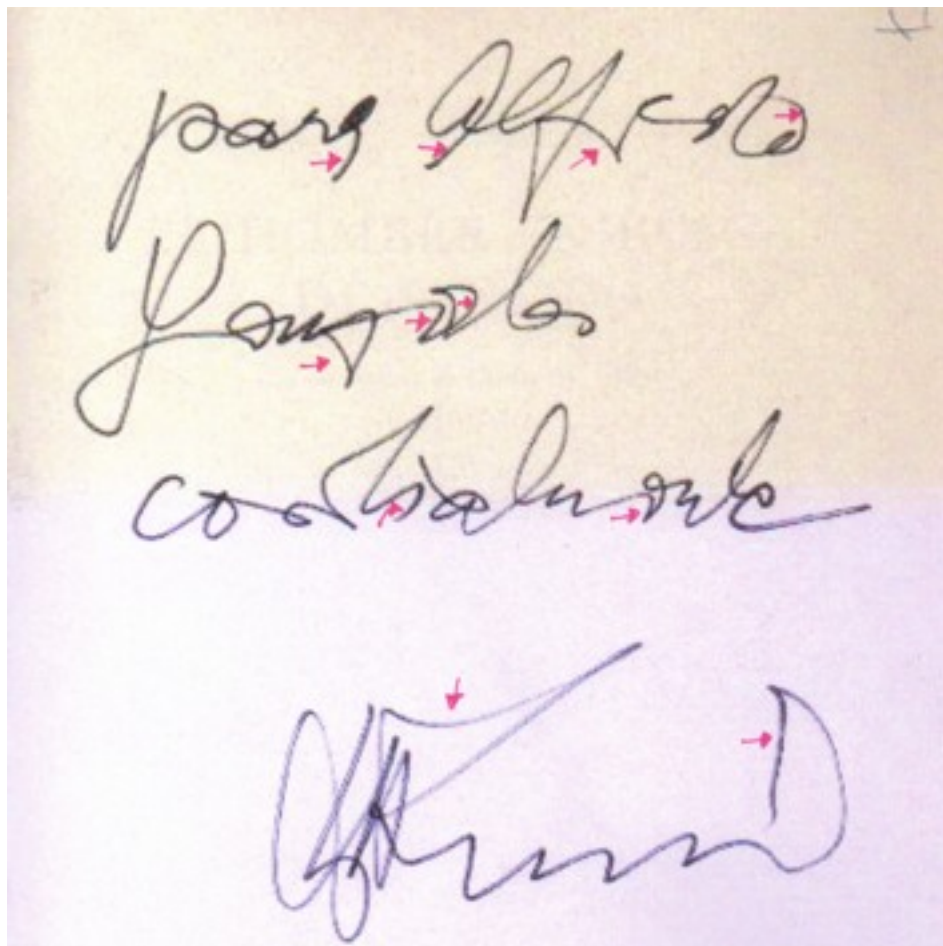 para Alfredo
Gonzalez
cordialmente